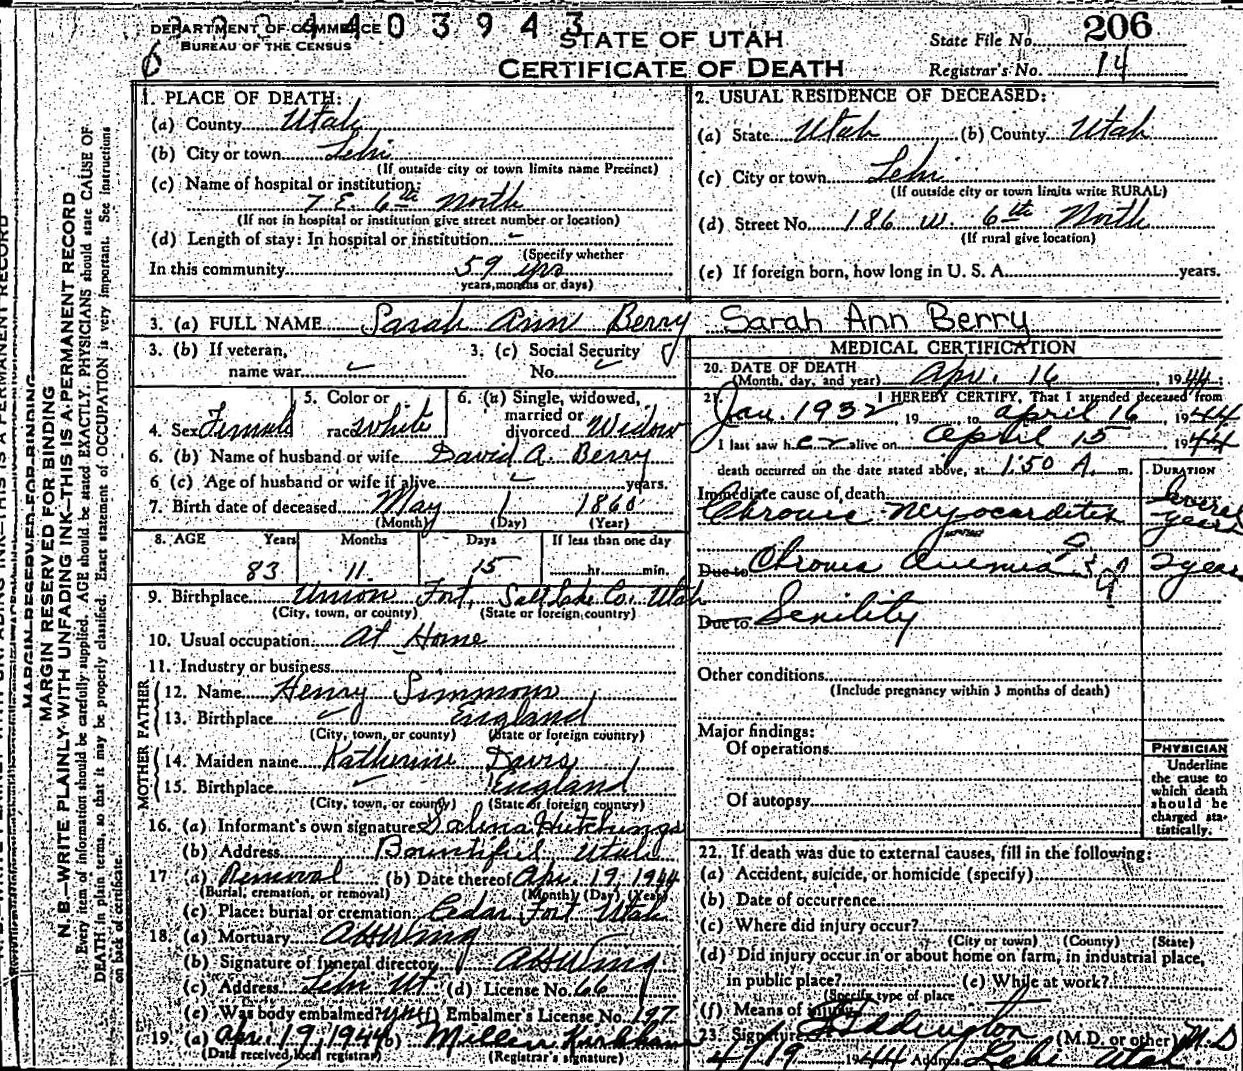 2 2 3 4 4 0 3 9 4 3
DEPARTMENT OF COMMERCE
BUREAU OF THE CENSUS
6
STATE OF UTAH
CERTIFICATE OF DEATH
State File No. 206
Registrar's No. 14
MARGIN RESERVED FOR BINDING
N. B.—WRITE PLAINLY WITH UNFADING INK—THIS IS A PERMANENT RECORD
Every item of information should be carefully supplied. AGE should be stated EXACTLY. PHYSICIANS should state CAUSE OF
DEATH in plain terms, so that it may be properly classified. Exact statement of OCCUPATION is very important. See instructions
on back of certificate.
1. PLACE OF DEATH:
(a) County Utah
(b) City or town Lehi
(If outside city or town limits name Precinct)
(c) Name of hospital or institution:
7 E. 6th North
(If not in hospital or institution give street number or location)
(d) Length of stay: In hospital or institution -
(Specify whether
In this community 59 yrs
years, months or days)
2. USUAL RESIDENCE OF DECEASED:
(a) State Utah (b) County Utah
(c) City or town Lehi
(If outside city or town limits write RURAL)
(d) Street No. 186 W. 6th North
(If rural give location)
(e) If foreign born, how long in U. S. A. years.
3. (a) FULL NAME Sarah Ann Berry Sarah Ann Berry
3. (b) If veteran,
name war
3. (c) Social Security
No.
4. Sex Female
5. Color or
race White
6. (a) Single, widowed,
married or
divorced Widow
6. (b) Name of husband or wife David A. Berry
6 (c) Age of husband or wife if alive years.
7. Birth date of deceased May 1 1860
(Month) (Day) (Year)
8. AGE Years Months Days If less than one day
83 11 15 hr. min.
9. Birthplace Union Fort, Salt Lake Co. Utah
(City, town, or county) (State or foreign country)
10. Usual occupation At Home
11. Industry or business
FATHER
12. Name Henry Simmons
13. Birthplace England
(City, town, or county) (State or foreign country)
MOTHER
14. Maiden name Katherine Davis
15. Birthplace England
(City, town, or county) (State or foreign country)
16. (a) Informant's own signature Salina Hutchings
(b) Address Bountiful Utah
17. (a) Removal (b) Date thereof Apr. 19, 1944
(Burial, cremation, or removal) (Month) (Day) (Year)
(c) Place: burial or cremation Cedar Fort Utah
18. (a) Mortuary A H Wing
(b) Signature of funeral director A H Wing
(c) Address Lehi Ut. (d) License No. 66
(e) Was body embalmed? (f) Embalmer's License No. 197
19. (a) Apr. 19, 1944 (b) Millen Kirkham
(Date received local registrar) (Registrar's signature)
MEDICAL CERTIFICATION
20. DATE OF DEATH
(Month, day, and year) Apr. 16, 1944
21. I HEREBY CERTIFY, That I attended deceased from
Jan. 1932, 19 to April 16, 1944
I last saw her alive on April 15 1944
death occurred on the date stated above, at 1:50 A. m.
DURATION
Immediate cause of death
Chronic Myocarditis Several years
Due to Chronic Anemia 2 years
Due to Senility
Other conditions
(Include pregnancy within 3 months of death)
Major findings:
Of operations
Of autopsy
PHYSICIAN
Underline
the cause to
which death
should be
charged sta-
tistically.
22. If death was due to external causes, fill in the following:
(a) Accident, suicide, or homicide (specify)
(b) Date of occurrence
(c) Where did injury occur?
(City or town) (County) (State)
(d) Did injury occur in or about home on farm, in industrial place,
in public place? (e) While at work?
(Specify type of place
(f) Means of injury
23. Signature Eddington (M.D. or other) M.D
4/19 1944 Address Lehi Utah